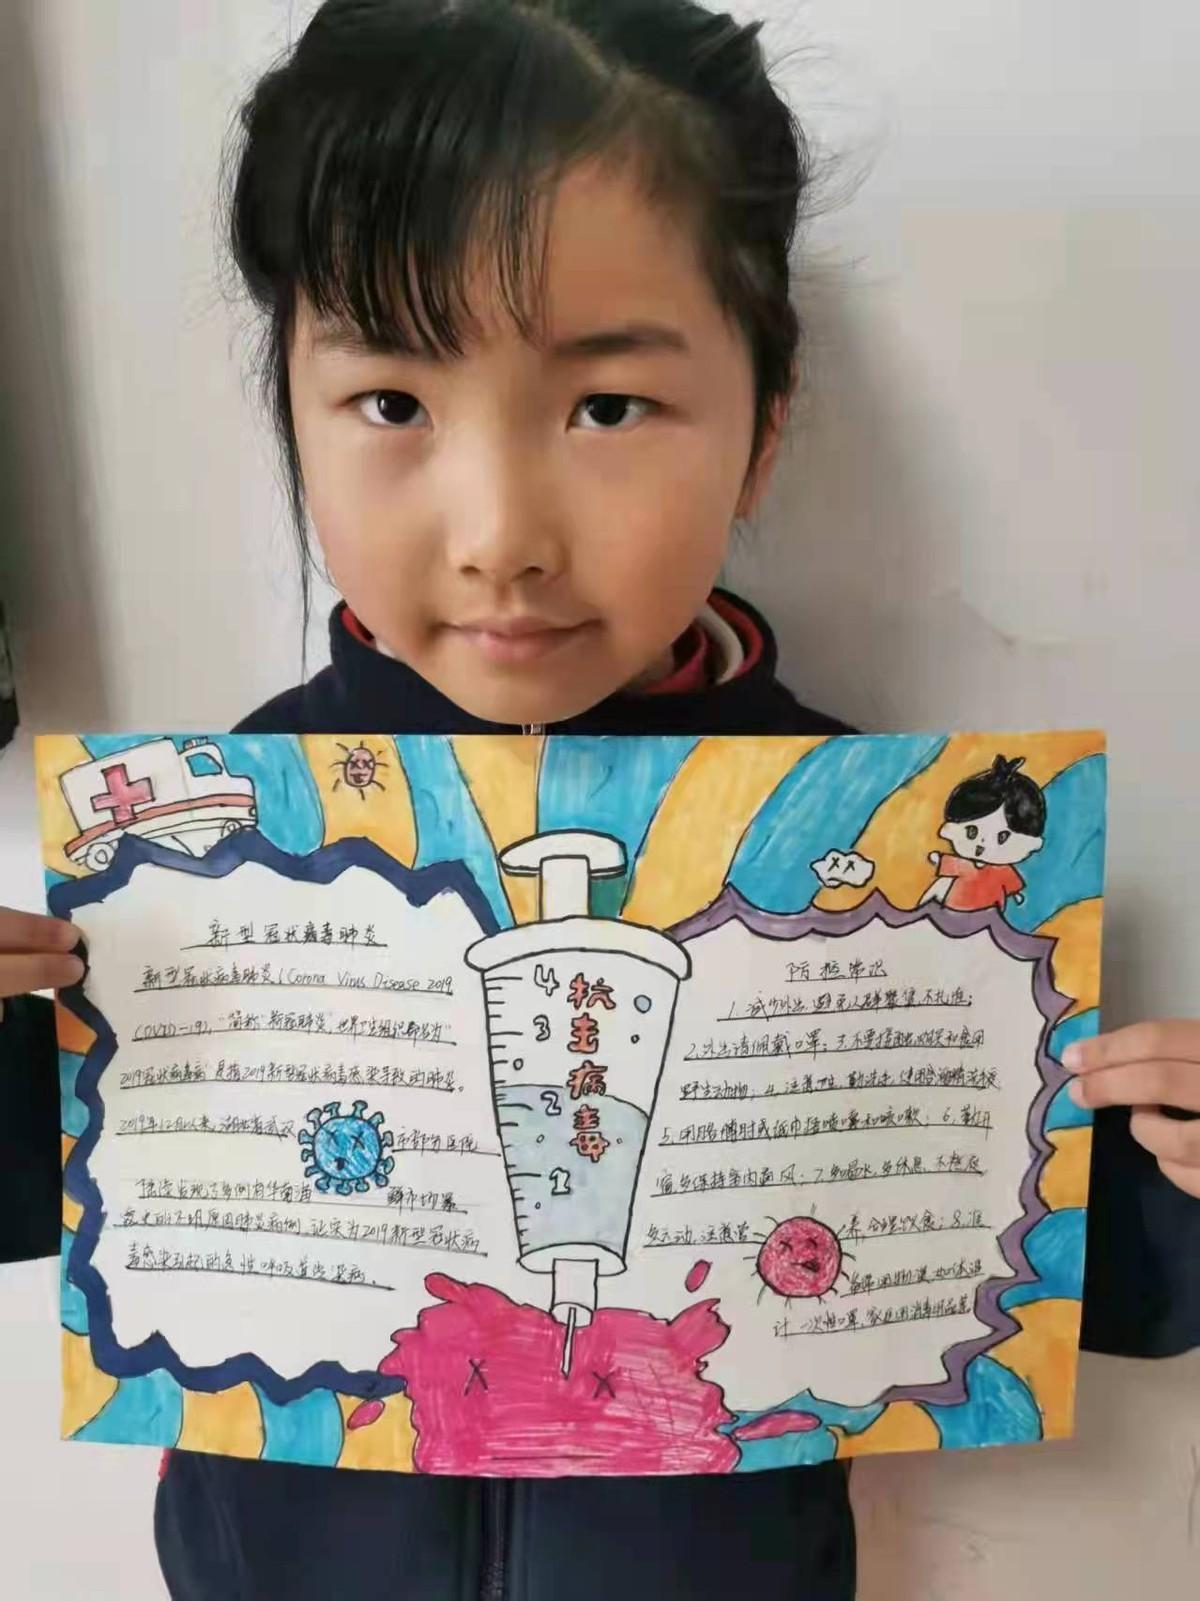 新型冠状病毒肺炎
新型冠状病毒肺炎(Corona Virus Disease 2019
COVID-19),"简称"新冠肺炎,世界卫生组织命名为"
2019冠状病毒病 是指2019新型冠状病毒感染导致的肺炎。
2019年12月以来,湖北省武汉 市部分医院
陆续发现了多例有华南海 鲜市场暴
露史的不明原因肺炎病例,证实为2019新型冠状病
毒感染引起的急性呼吸道传染病。
4
3
2
1
抗击病毒
防控常识
1.减少外出,避免人群聚集,不扎堆;
2.外出请佩戴口罩;3.不要接触,购买和食用
野生动物;4.注意卫生,勤洗手,使用含酒精洗手液
5.用胳膊肘或纸巾挡喷嚏和咳嗽;6.勤开
窗,多保持室内通风;7.多喝水,多休息,不熬夜
多运动,注意营 养,合理饮食;8.准
备常用物资,如体温
计,一次性口罩,家庭用消毒用品等